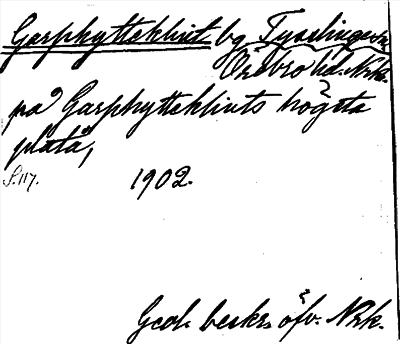 Garphytteklint bg Tysslinge sn
Örebro hd. Nrk.
på Garphytteklints högsta
platå,
S. 117. 1902.
Geol. beskr. öfv. Nrk.